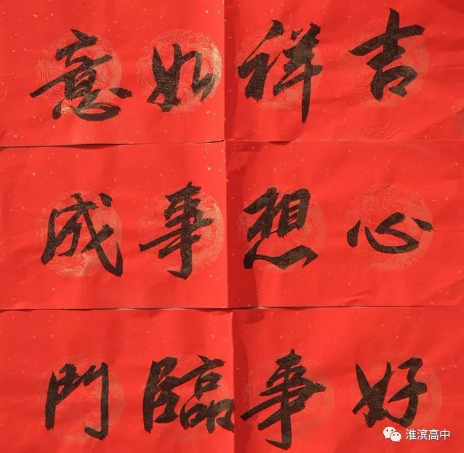 吉祥如意
心想事成
好事臨門
淮滨高中